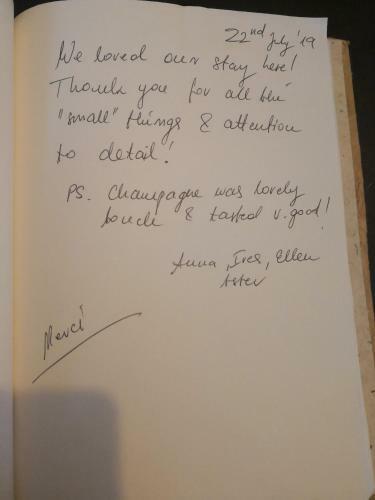 22nd July '19
We loved our stay here!
Thank you for all the
"small" things & attention
to detail!
PS. Champagne was lovely
touch & tasted v. good!
Anna, Ellen
Merci